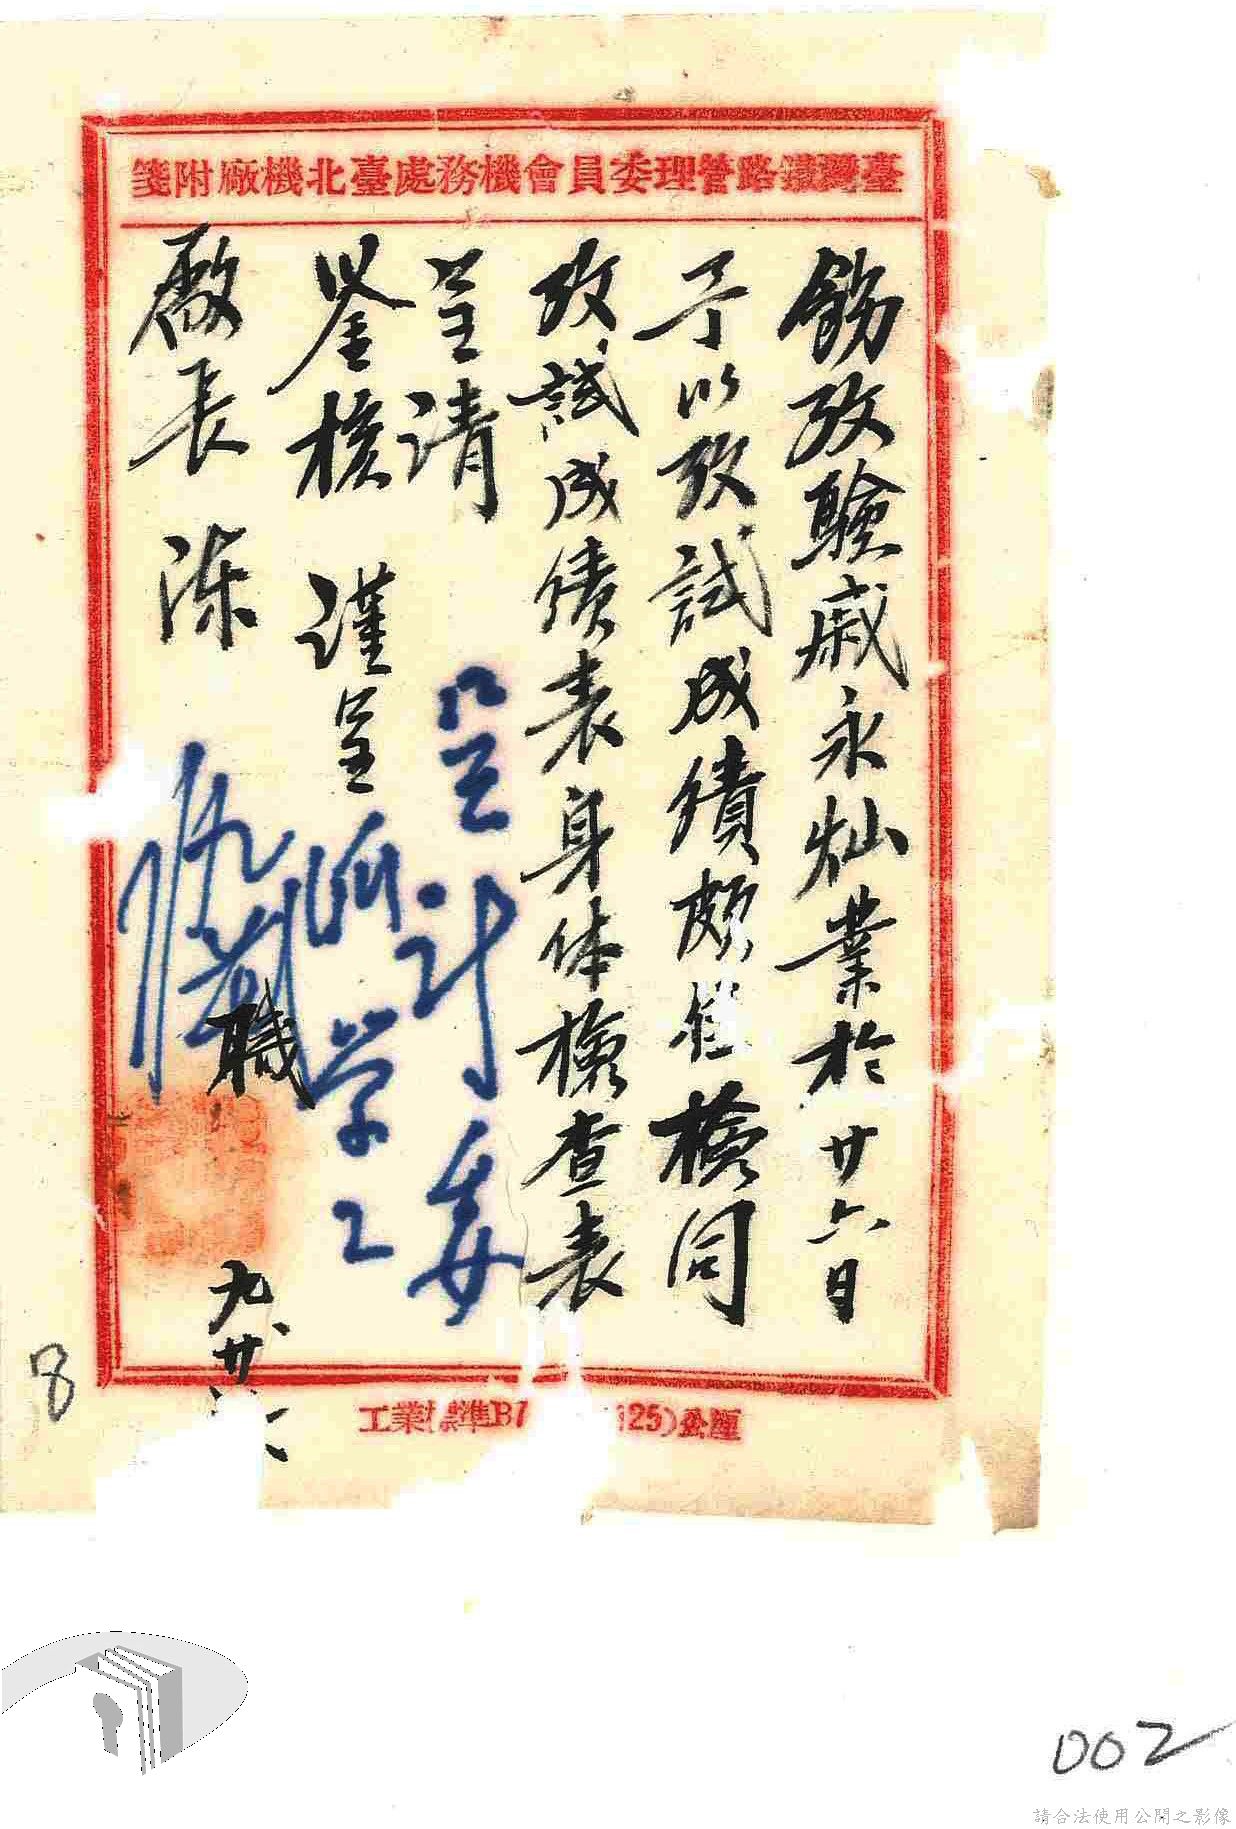 臺灣鐵路管理委員會機務處臺北機廠附箋
飭攷驗戚永灿業於廿六日
予以攷試成績頗佳檢同
攷試成績表身体檢查表
呈請
鑒核 謹呈
廠長 陳
職
九、廿
呈計委
学工
工業標準B7 125)公厘
8
002
請合法使用公開之影像